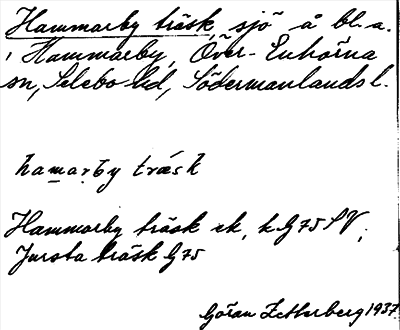 Hammarby träsk, sjö å bl. a.
i Hammarby, Över-Enhörna
sn, Selebo hd, Södermanlands l.
hamarby träsk
Hammarby träsk ek, k G75 SV;
Jursta träsk G75
Göran Zetterberg 1937